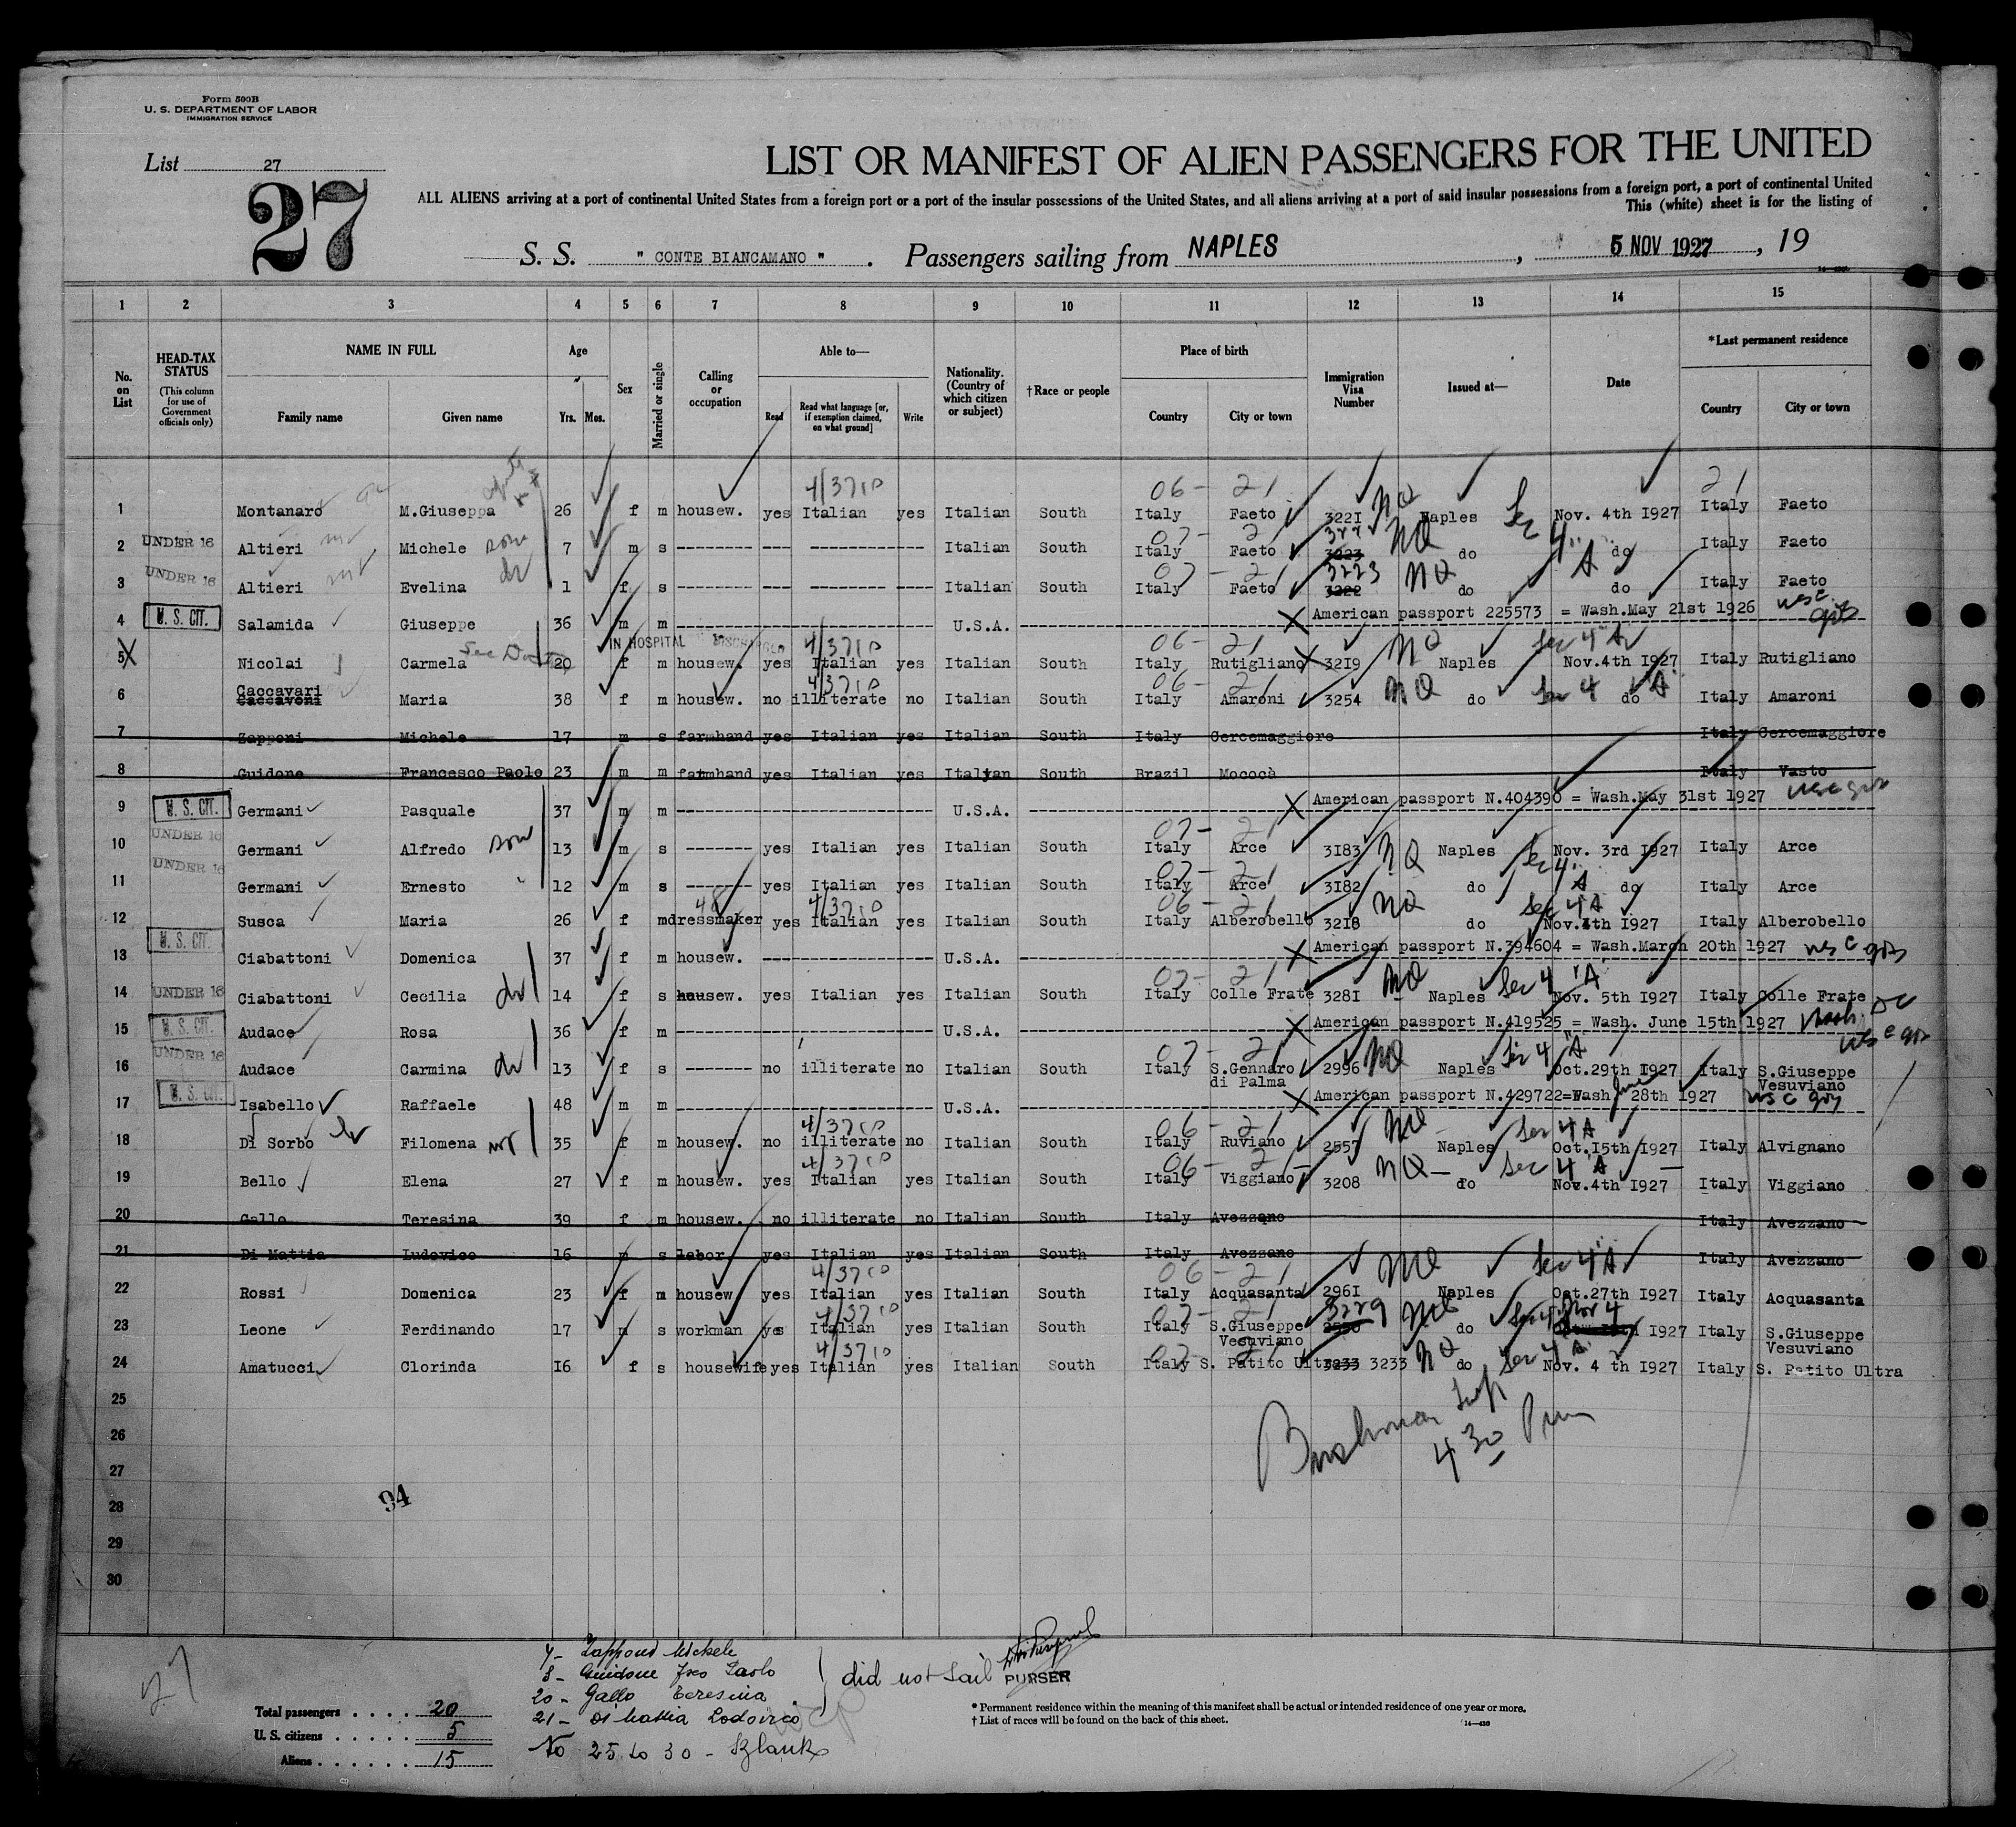 Form 500B
U. S. DEPARTMENT OF LABOR
IMMIGRATION SERVICE
List 27
27
LIST OR MANIFEST OF ALIEN PASSENGERS FOR THE UNITED
ALL ALIENS arriving at a port of continental United States from a foreign port or a port of the insular possessions of the United States, and all aliens arriving at a port of said insular possessions from a foreign port, a port of continental United
This (white) sheet is for the listing of
S. S. " CONTE BIANCAMANO " . Passengers sailing from NAPLES , 5 NOV 1927 , 19
1 2 3 4 5 6 7 8 9 10 11 12 13 14 15
No. on List
HEAD-TAX STATUS (This column for use of Government officials only)
NAME IN FULL Family name Given name
Age Yrs. Mos.
Sex
Married or single
Calling or occupation
Able to— Read Read what language [or, if exemption claimed, on what ground] Write
Nationality. (Country of which citizen or subject)
†Race or people
Place of birth Country City or town
Immigration Visa Number
Issued at—
Date
*Last permanent residence Country City or town
4/3710 06 - 21 21
1 Montanaro M.Giuseppa 26 f m housew. yes Italian yes Italian South Italy Faeto 322I NQ Naples Sec 4 Nov. 4th I927 Italy Faeto
2 UNDER 16 Altieri Michele son 7 m s -------- --- ------------ Italian South Italy Faeto 3223 NQ do do Italy Faeto
3 UNDER 16 Altieri Evelina 1 f s -------- --- -------- ---- Italian South Italy Faeto 3222 3223 NQ do do Italy Faeto
4 U. S. CIT. Salamida Giuseppe 36 m m U.S.A. American passport 225573 = Wash.May 21st 1926
IN HOSPITAL DISCHARGED 4/3710 06 - 21
5 Nicolai Carmela 20 f m housew. yes Italian yes Italian South Italy Rutigliano 32I9 NQ Naples Sec 4 A Nov.4th I927 Italy Rutigliano
6 Caccavari Caccavoni Maria 38 f m housew. no illiterate no Italian South Italy Amaroni 3254 NQ do Sec 4 A do Italy Amaroni
7 Zapponi Michele 17 m s farmhand yes Italian yes Italian South Italy Cercemaggiore Italy Cercemaggiore
8 Guidone Francesco Paolo 23 m m farmhand yes Italian yes Italyan South Brazil Mococà Italy Vasto
9 U. S. CIT. Germani Pasquale 37 m m U.S.A. American passport N.404390 = Wash.May 31st 1927
10 UNDER 16 Germani Alfredo son 13 m s ------- yes Italian yes Italian South Italy Arce 3I83 NQ Naples Nov. 3rd I927 Italy Arce
11 UNDER 16 Germani Ernesto 12 m s ------- yes Italian yes Italian South Italy Arce 3I82 do do Italy Arce
12 Susca Maria 26 f m dressmaker yes Italian yes Italian South Italy Alberobello 32I8 NQ do Sec 4 A Nov.4th I927 Italy Alberobello
13 U. S. CIT. Ciabattoni Domenica 37 f m housew. U.S.A. American passport N.394604 = Wash.March 20th 1927
14 UNDER 16 Ciabattoni Cecilia 14 f s housew. yes Italian yes Italian South Italy Colle Frate 328I NQ Naples Sec 4 A Nov. 5th I927 Italy Colle Frate
15 U. S. CIT. Audace Rosa 36 f m U.S.A. American passport N.419525 = Wash. June 15th 1927
16 UNDER 16 Audace Carmina 13 f s ------- no illiterate no Italian South Italy S.Gennaro di Palma 2996 NQ Naples Sec 4 A Oct.29th I927 Italy S.Giuseppe Vesuviano
17 U. S. CIT. Isabello Raffaele 48 m m U.S.A. American passport N.429722=Wash June 28th 1927
18 Di Sorbo Filomena 35 f m housew. no illiterate no Italian South Italy Ruviano 2557 NQ Naples Sec 4 A Oct.I5th I927 Italy Alvignano
19 Bello Elena 27 f m housew. yes Italian yes Italian South Italy Viggiano 3208 NQ do Sec 4 A Nov.4th I927 Italy Viggiano
20 Gallo Teresina 39 f m housew. no illiterate no Italian South Italy Avezzano Italy Avezzano
21 Di Mattia Ludovico 16 m s labor yes Italian yes Italian South Italy Avezzano Italy Avezzano
22 Rossi Domenica 23 f m housew yes Italian yes Italian South Italy Acquasanta 296I NQ Naples Sec 4 A Oct.27th I927 Italy Acquasanta
23 Leone Ferdinando 17 m s workman yes Italian yes Italian South Italy S.Giuseppe Vesuviano 3229 do Nov 4 I927 Italy S.Giuseppe Vesuviano
24 Amatucci Clorinda I6 f s housewife yes Italian yes Italian South Italy S. Potito Ultra 3233 3233 NQ do Sec 4 A Nov. 4 th I927 Italy S. Potito Ultra
25
26
4 30 Pm
27
28
94
29
30
27
7- Zapponi Michele
8- Guidone Fco Paolo
20- Gallo Teresina
21- Di Mattia Lodovico
did not sail
PURSER
No 25 to 30 - Blank
Total passengers . . . . 20
U. S. citizens . . . . . 5
Aliens . . . . . . 15
* Permanent residence within the meaning of this manifest shall be actual or intended residence of one year or more.
† List of races will be found on the back of this sheet.
14—430